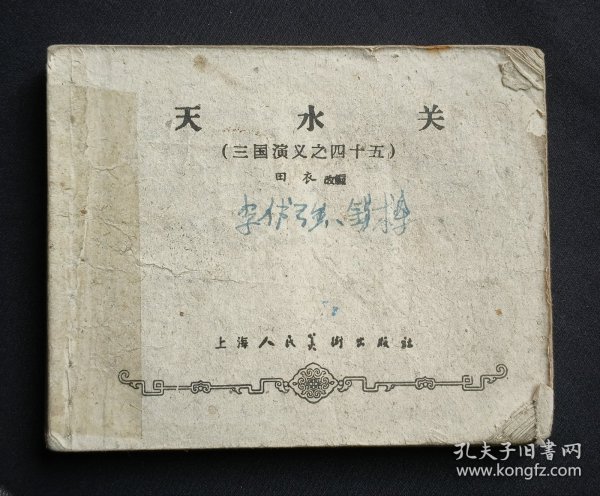 天水关
（三国演义之四十五）
田衣 改编
上海人民美術出版社
孔夫子旧書网
www.kongfz.com